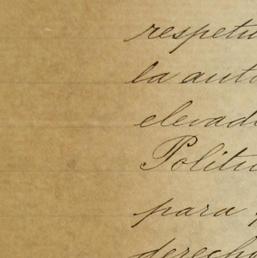 respetu
la auto
elevad
Politi
para
derecho